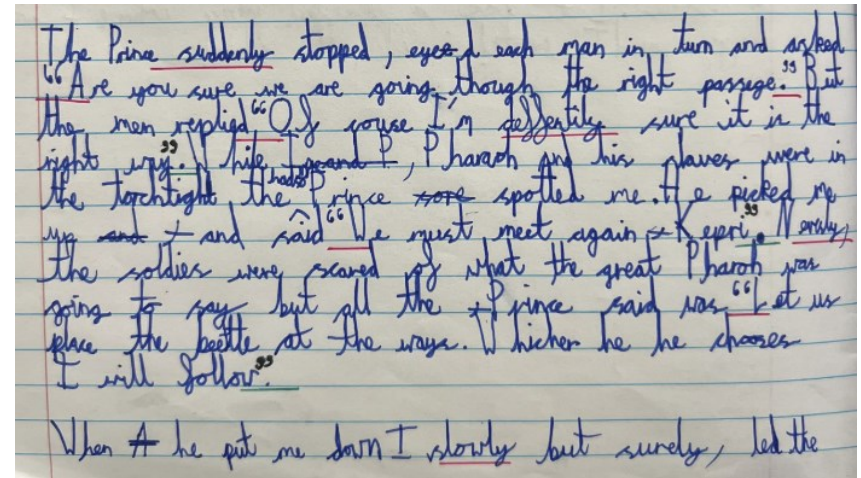 The Prince suddenly stopped, eyed each man in turn and asked
“Are you sure we are going though the right passege.” But
the men replied “Of couse I'm deffentily sure it is the
right way”. While I and P, Pharaoh and his slaves were in
the torchtight, the Prince had spotted me. He picked me
up and and said “We must meet again Kepri”. Nervisly,
the soldies were scared of what the great Pharoh was
going to say but all the Prince said was “Let us
place the beetle at the ways. Whicher he he chooses
I will follow.”
When A he put me down I slowly but surely, led the